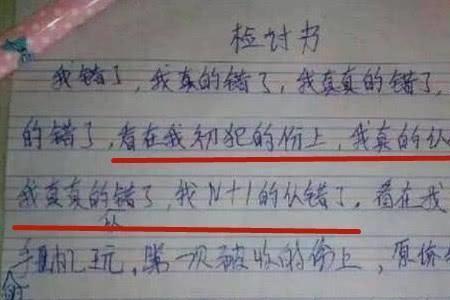 检讨书
我错了，我真的错了，我真真的错了，
的错了，看在我初犯的份上，我真的认
我真真的错了，我N+1的认错了，看在我
认
手机玩，第一次被收的份上，原谅